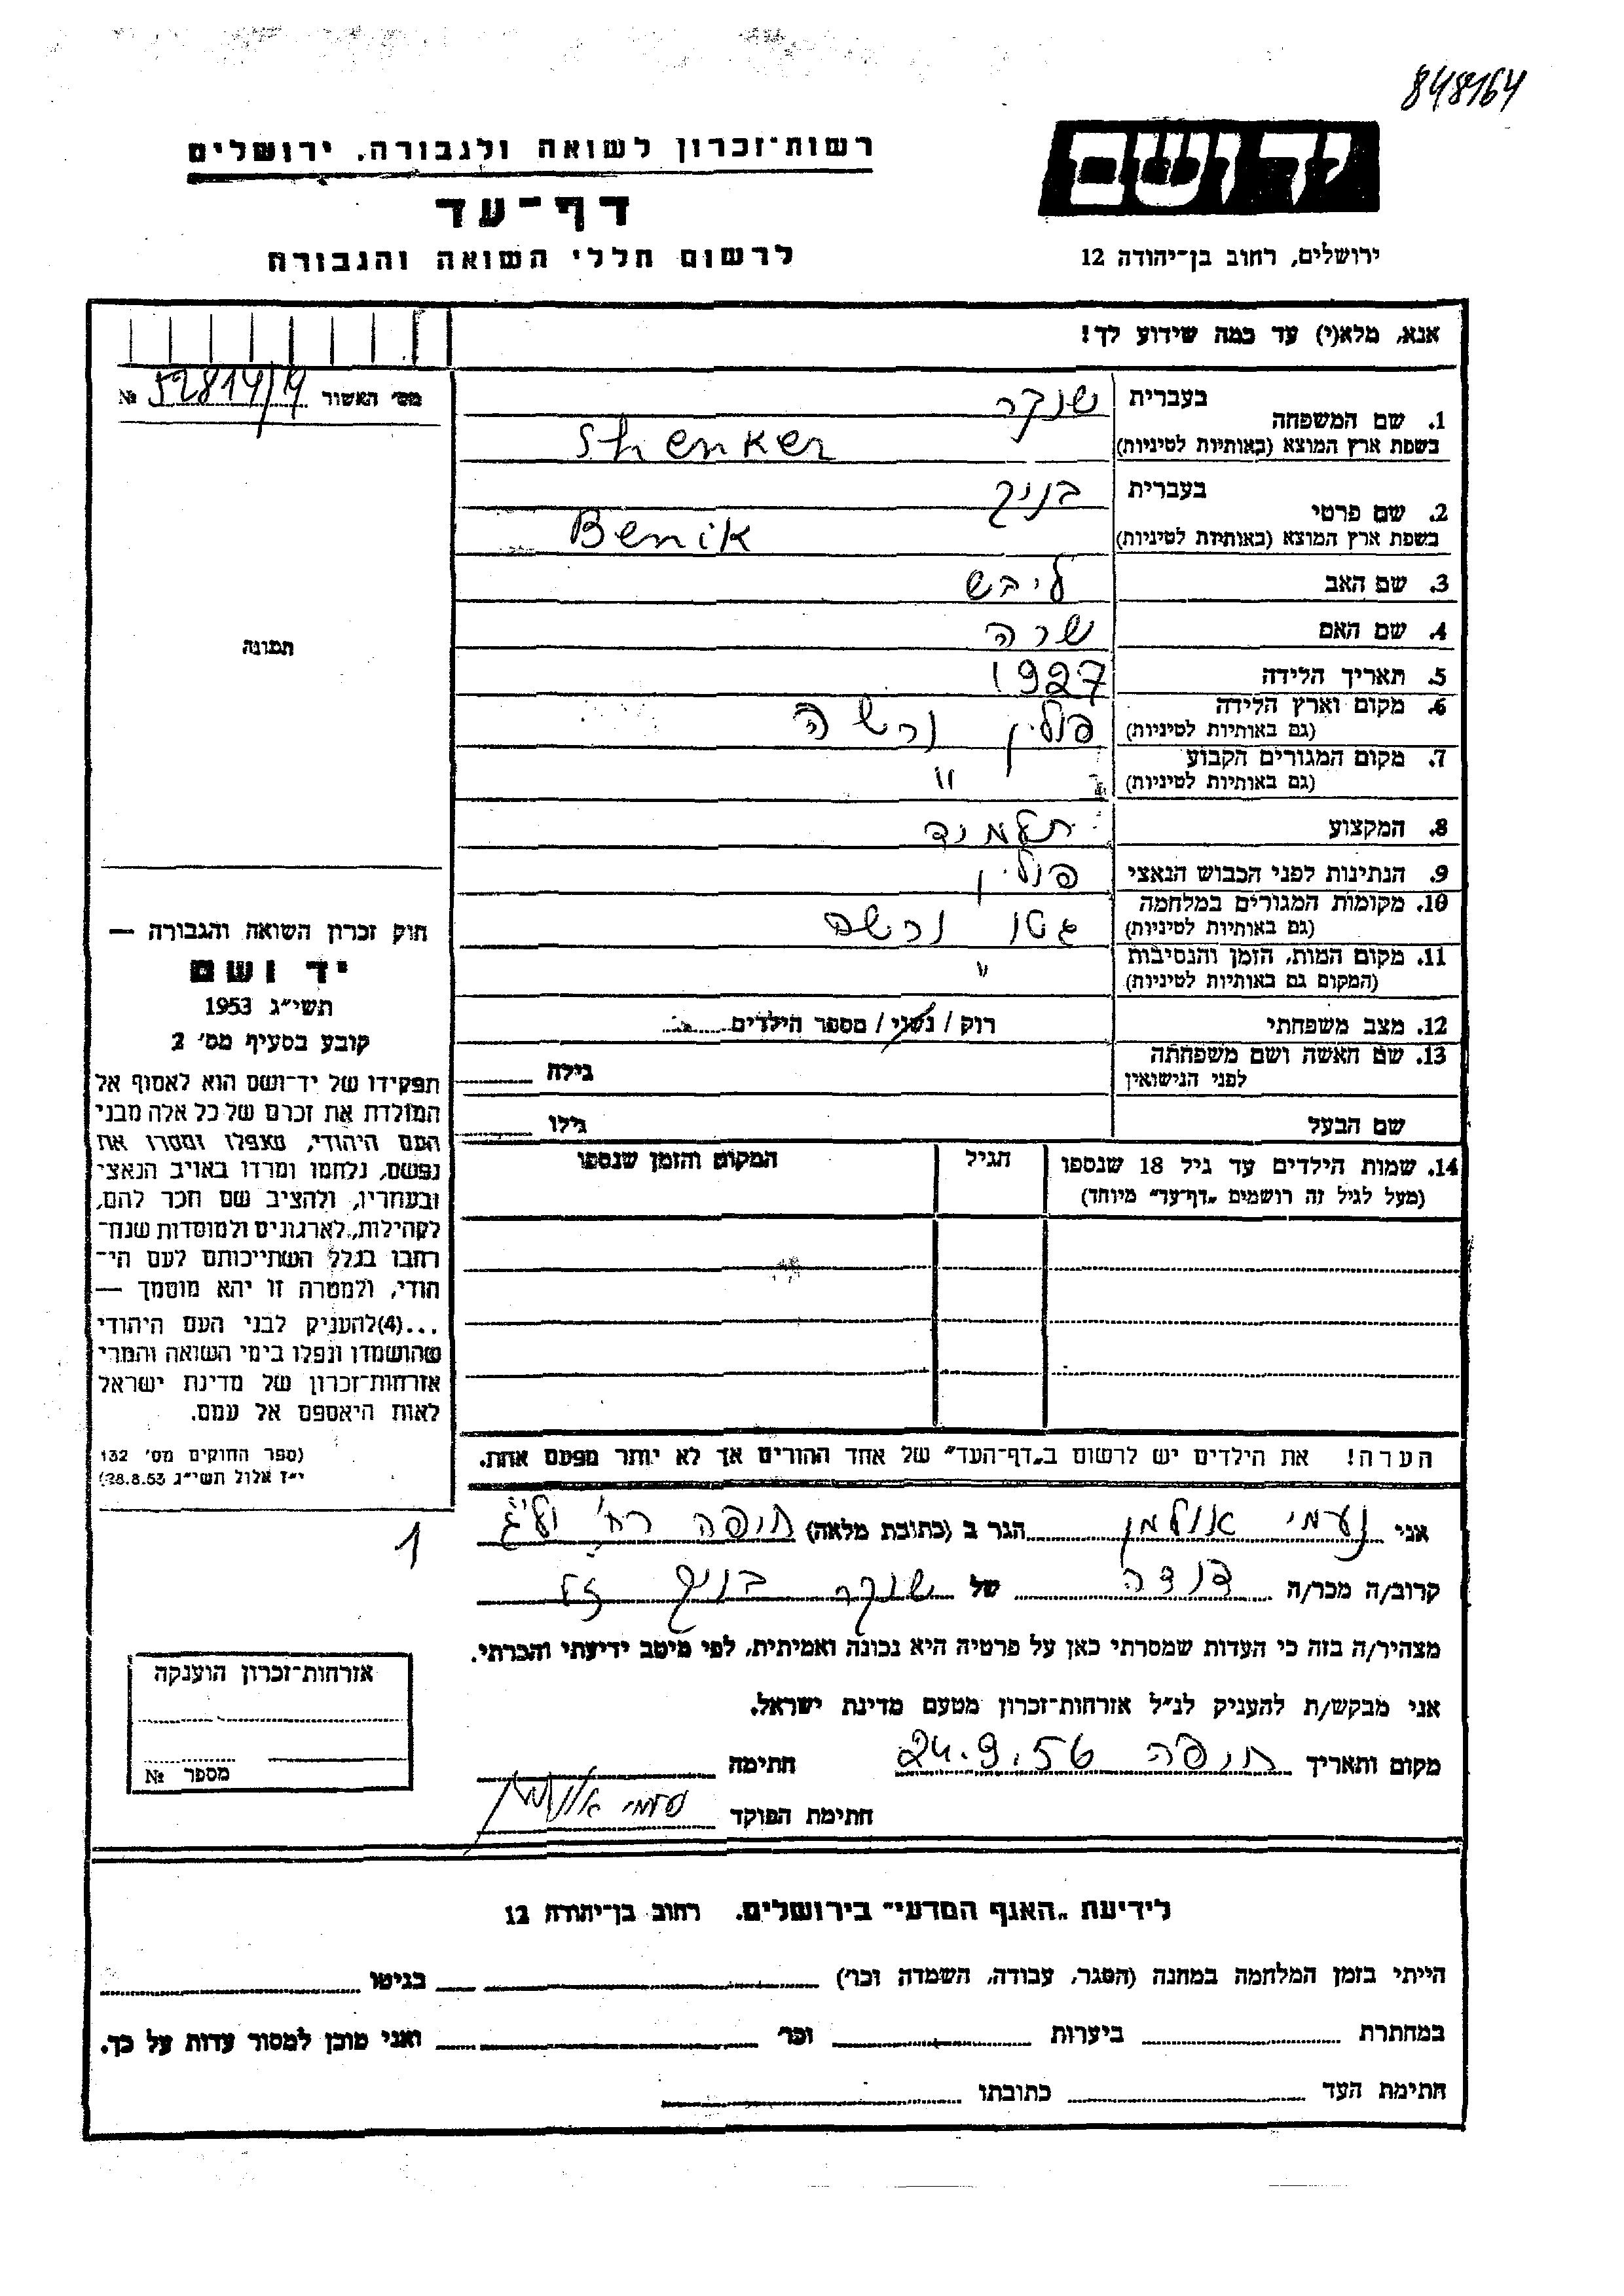 848164
רשות־זכרון לשואה ולגבורה. ירושלים
יד ושם
דף־עד
לרשום חללי השואה והגבורה
ירושלים, רחוב בן־יהודה 12
אנא, מלא(י) עד כמה שידוע לך!
מס׳ האשור 52814/14 №
1. שם המשפחה בעברית שנקר
בשפת ארץ המוצא (באותיות לטיניות) Shenker
2. שם פרטי בעברית בניק
בשפת ארץ המוצא (באותיות לטיניות) Benik
3. שם האב ליבש
4. שם האם שרה
תמונה
5. תאריך הלידה 1927
6. מקום וארץ הלידה (גם באותיות לטיניות) פולין ורשה
7. מקום המגורים הקבוע (גם באותיות לטיניות) "
8. המקצוע תלמיד
9. הנתינות לפני הכבוש הנאצי פולין
10. מקומות המגורים במלחמה (גם באותיות לטיניות) גטו ורשה
11. מקום המות, הזמן והנסיבות (המקום גם באותיות לטיניות) "
12. מצב משפחתי רוק / נשוי / מספר הילדים
13. שם האשה ושם משפחתה לפני הנישואין גילה
שם הבעל גילו
14. שמות הילדים עד גיל 18 שנספו הגיל המקום והזמן שנספו
(מעל לגיל זה רושמים „דף־עד״ מיוחד)
הערה! את הילדים יש לרשום ב„דף־העד״ של אחד ההורים אך לא יותר מפעם אחת.
חוק זכרון השואה והגבורה —
יד ושם
תשי״ג 1953
קובע בסעיף מס׳ 2
תפקידו של יד־ושם הוא לאסוף אל
המולדת את זכרם של כל אלה מבני
העם היהודי, שנפלו ומסרו את
נפשם, נלחמו ומרדו באויב הנאצי
ובעוזריו, ולהציב שם וזכר להם,
לקהילות, לארגונים ולמוסדות שנח־
רבו בגלל השתייכותם לעם הי־
הודי, ולמטרה זו יהא מוסמך —
...(4)להעניק לבני העם היהודי
שהושמדו ונפלו בימי השואה והמרי
אזרחות־זכרון של מדינת ישראל
לאות היאספם אל עמם.
(ספר החוקים מס׳ 132
י״ז אלול תשי״ג 28.8.53)
1
אני נעמי אולמן הגר ב (כתובת מלאה) חיפה רח׳
קרוב/ה מכר/ה דודה של שנקר בניק ז״ל
מצהיר/ה בזה כי העדות שמסרתי כאן על פרטיה היא נכונה ואמיתית, לפי מיטב ידיעתי והכרתי.
אני מבקש/ת להעניק לנ״ל אזרחות־זכרון מטעם מדינת ישראל.
מקום ותאריך חיפה 24.9.56 חתימה
חתימת הפוקד נעמי אולמן
אזרחות־זכרון הוענקה
מספר №
לידיעת „האגף המדעי״ בירושלים. רחוב בן־יהודה 12
הייתי בזמן המלחמה במחנה (הסגר, עבודה, השמדה וכו׳) בגיטו
במחתרת ביערות וכו׳ ואני מוכן למסור עדות על כך.
חתימת העד כתובתו